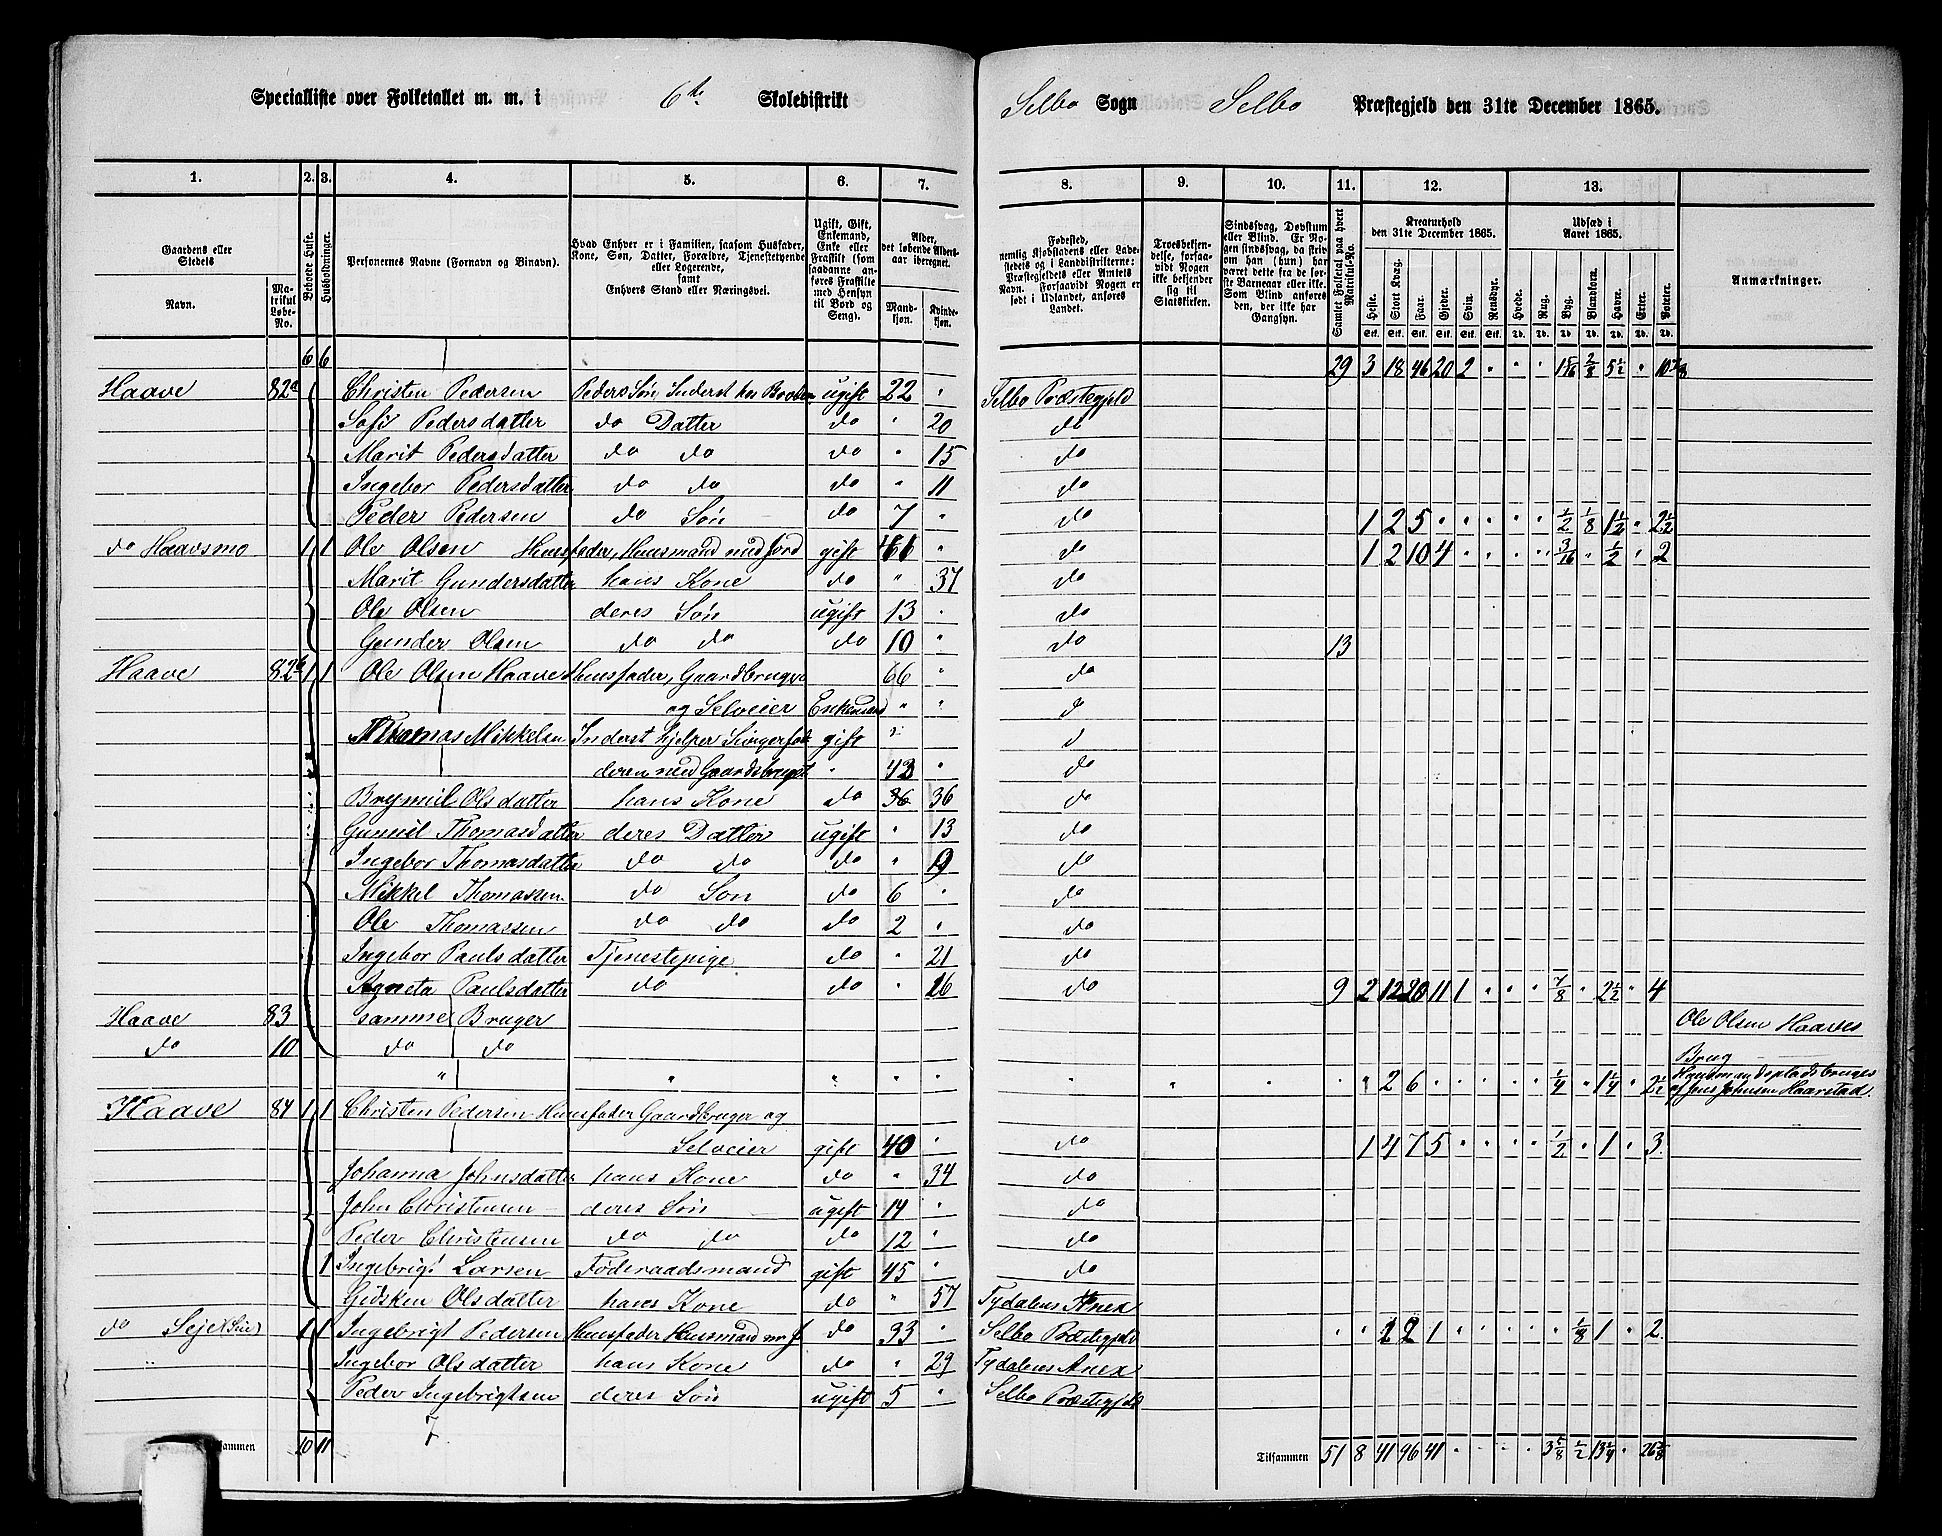 Specialliste over Folketallet m. m. i 6te Skoledistrikt
Selbo Sogn Selbo Præstegjeld den 31te December 1865.
1. 2. 3. 4. 5. 6. 7.
8. 9. 10. 11. 12. 13.
Gaardens eller Stedets
Navn.
Matrikul Løbe-No.
Beboede Huse.
Husholdninger.
Personernes Navne (Fornavn og Binavn).
Hvad Enhver er i Familien, saasom Husfader, Kone, Søn, Datter, Forældre, Tjenestetyende eller Logerende, samt Enhvers Stand eller Næringsvei.
Ugift, Gift, Enkemand, Enke eller Fraskilt (som saadanne anføres Fraskilte med Hensyn til Bord og Seng).
Alder, det løbende Aldersaar iberegnet.
Mandkjøn. Kvindekjøn.
Fødested, nemlig Kjøbstadens eller Ladestedets og i Landdistrikterne: Præstegjeldets eller Amtets Navn. Forsaavidt Nogen er født i Udlandet, anføres Landet.
Troesbekjendelse, forsaavidt Nogen ikke bekjender sig til Statskirken.
Sindssvag, Døvstum eller Blind. Er Nogen sindssvag, da skrives om han (hun) har været dette fra de første Barneaar eller ikke. Som Blind anføres den, der ikke har Gangsyn.
Samlet Folketal paa hvert Matrikul-No.
Kreaturhold den 31te December 1865.
Heste. Stort Kvæg. Faar. Gjeder. Svin. Rensdyr.
Udsæd i Aaret 1865.
Hvede. Rug. Byg. Blandkorn. Havre. Erter. Poteter.
Anmærkninger.
6 6 29 3 18 46 20 2 " " " 1 5/16 2/8 5 1/2 " 10 7/8
Haave 82a Christen Pedersen Peders Søn Inderst ugift 22 " Selbo Præstegjeld
Pedersdatter do Datter do " 20 do
Marit Pedersdatter do do do " 15 do
Ingebor Pedersdatter do do do " 11 do
Peder Pedersen do Søn do 7 " do 1 2 5 " " " " " 1/2 1/8 1 1/2 " 2 1/2
do Haavsmo 1 1 Ole Olsen Husfader, Husmand med Jord gift 61 " do 1 2 10 4 " " " " 3/16 " 1/2 " 2
Marit Gundersdatter hans Kone do " 37 do
Ole Olsen deres Søn ugift 13 " do
Gunder Olsen do do do 10 " do 13
Haave 82b 1 1 Ole Olsen Haaves Husfader, Gaardbruger 66 " do
og Selveier Enkemand " "
Thomas Mikkelsen Inderst hjelper gift "
deren med Gaardsbruget " 43 " do
Olsdatter hans Kone do 36 36 do
Gunnil Thomasdatter deres Datter ugift " 13 do
Ingebor Thomasdatter do do do " 9 do
Mikkel Thomassen do Søn do 6 " do
Ole Thomassen do do do 2 " do
Ingebor Paulsdatter Tjenestepige do " 21 do
Agneta Paulsdatter do do " 16 do 9 2 12 20 11 1 " " " 7/8 " 2 1/2 " 4
Haave 83 samme Bruger Ole Olsen Haaves
do 10 do do Brug
" " " " " " " " " 2 6 " " " " " 1/4 " 1 1/4 " 2 1/2 Husmandspladsbruges
af Jens Johnsen Haarstad.
Haave 84 1 1 Christen Pedersen Husfader Gaardbruger og
Selveier gift 40 " do 1 4 7 5 " " " " 1/2 " 1 " 3
Johanna Johnsdatter hans Kone do " 34 do
John Christensen deres Søn ugift 14 " do
Peder Christensen do do do 12 " do
1 Ingebrigt Larsen Føderaadsmand gift 45 " do
Gidsken Olsdatter hans Kone do " 57 Tydalens Anex
do 1 1 Ingebrigt Pedersen Husfader Husmand m J do 33 " Selbo Præstegjeld " " 2 2 1 " " " " " 1/8 1 " 2
" Ingebor Olsdatter hans Kone do " 29 Tydalens Anex
Peder Ingebrigtsen deres Søn ugift 5 " Selbo Præstegjeld
7
10 11 Tilsammen 51 8 41 96 41 " " " " 3 5/8 1/2 13 1/4 " 26 3/8